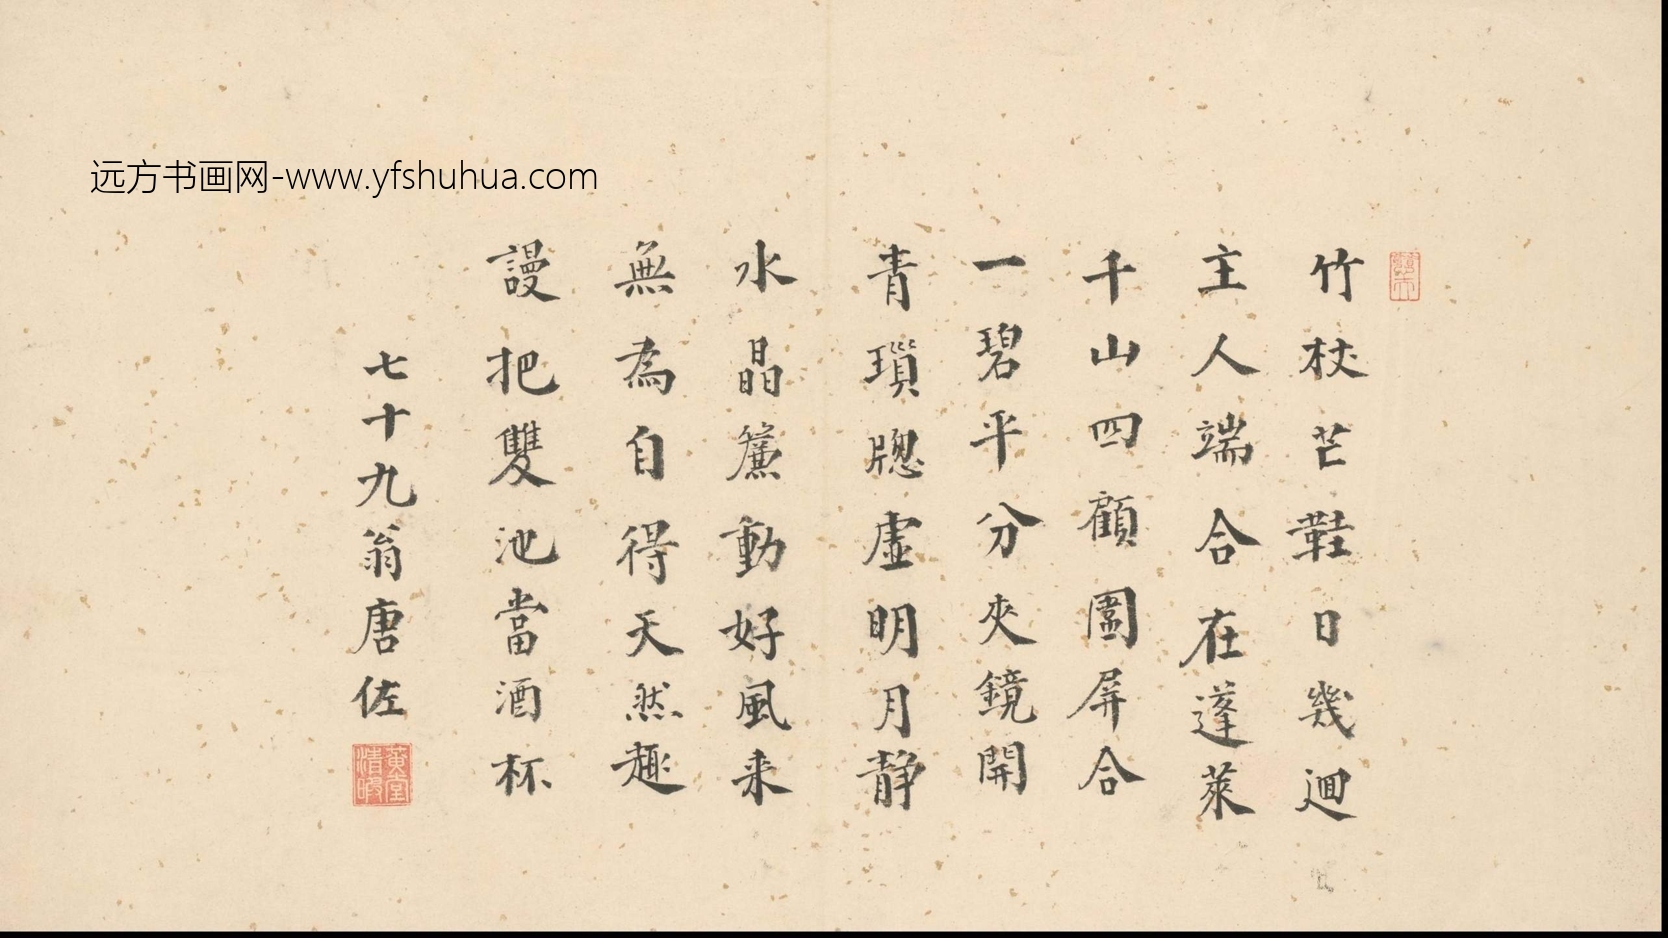 远方书画网-www.yfshuhua.com
竹杖芒鞋日幾迴
主人端合在蓬萊
千山四顧圍屏合
一碧平分夾鏡開
青瑣牎虛明月静
水晶簾動好風来
無為自得天然趣
謾把雙池當酒杯
七十九翁唐佐
黄堂
清暇